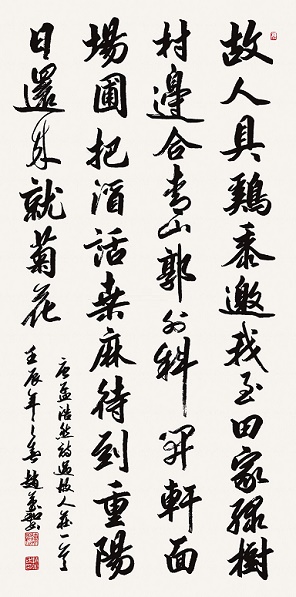 故人具鷄黍邀我至田家綠樹
村邊合青山郭外斜開軒面
場圃把酒話桑麻待到重陽
日還來就菊花
唐孟浩然詩過故人莊一首
壬辰年之春趙書